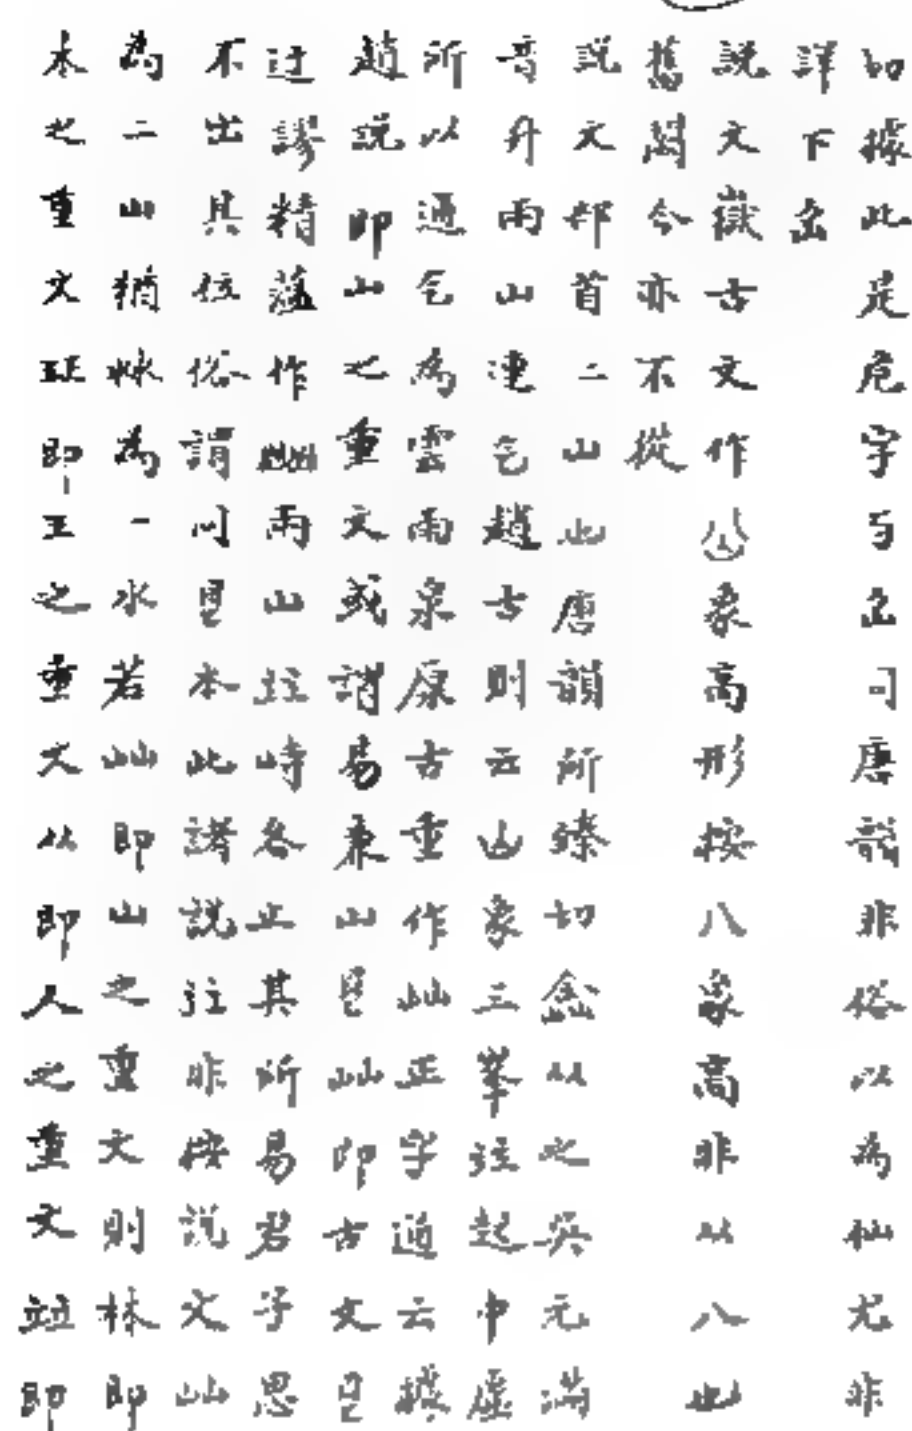 如據此是危字与嵒同唐韻非俗以為仙尤非
詳下嵒
說文嶽古文作𡶳象高形按八象高非从八也
舊闕今亦不從
說文部首二山此唐韻所臻切嵞从之吳元滿
音升兩山連乞趙古則云山象三峯注起中虛
所以通乞為雲雨泉原古重作屾正字通云據
趙說即山之重文或謂易兼山艮屾即古文艮
迂謬精薀作𡺲兩山注峙各止其所易君子思
不出其位俗謂以艮本此諸說注非按說文屾
為二山猶沝為一水若屾即山之重文則林即
木之重文玨即王之重文从即人之重文竝即